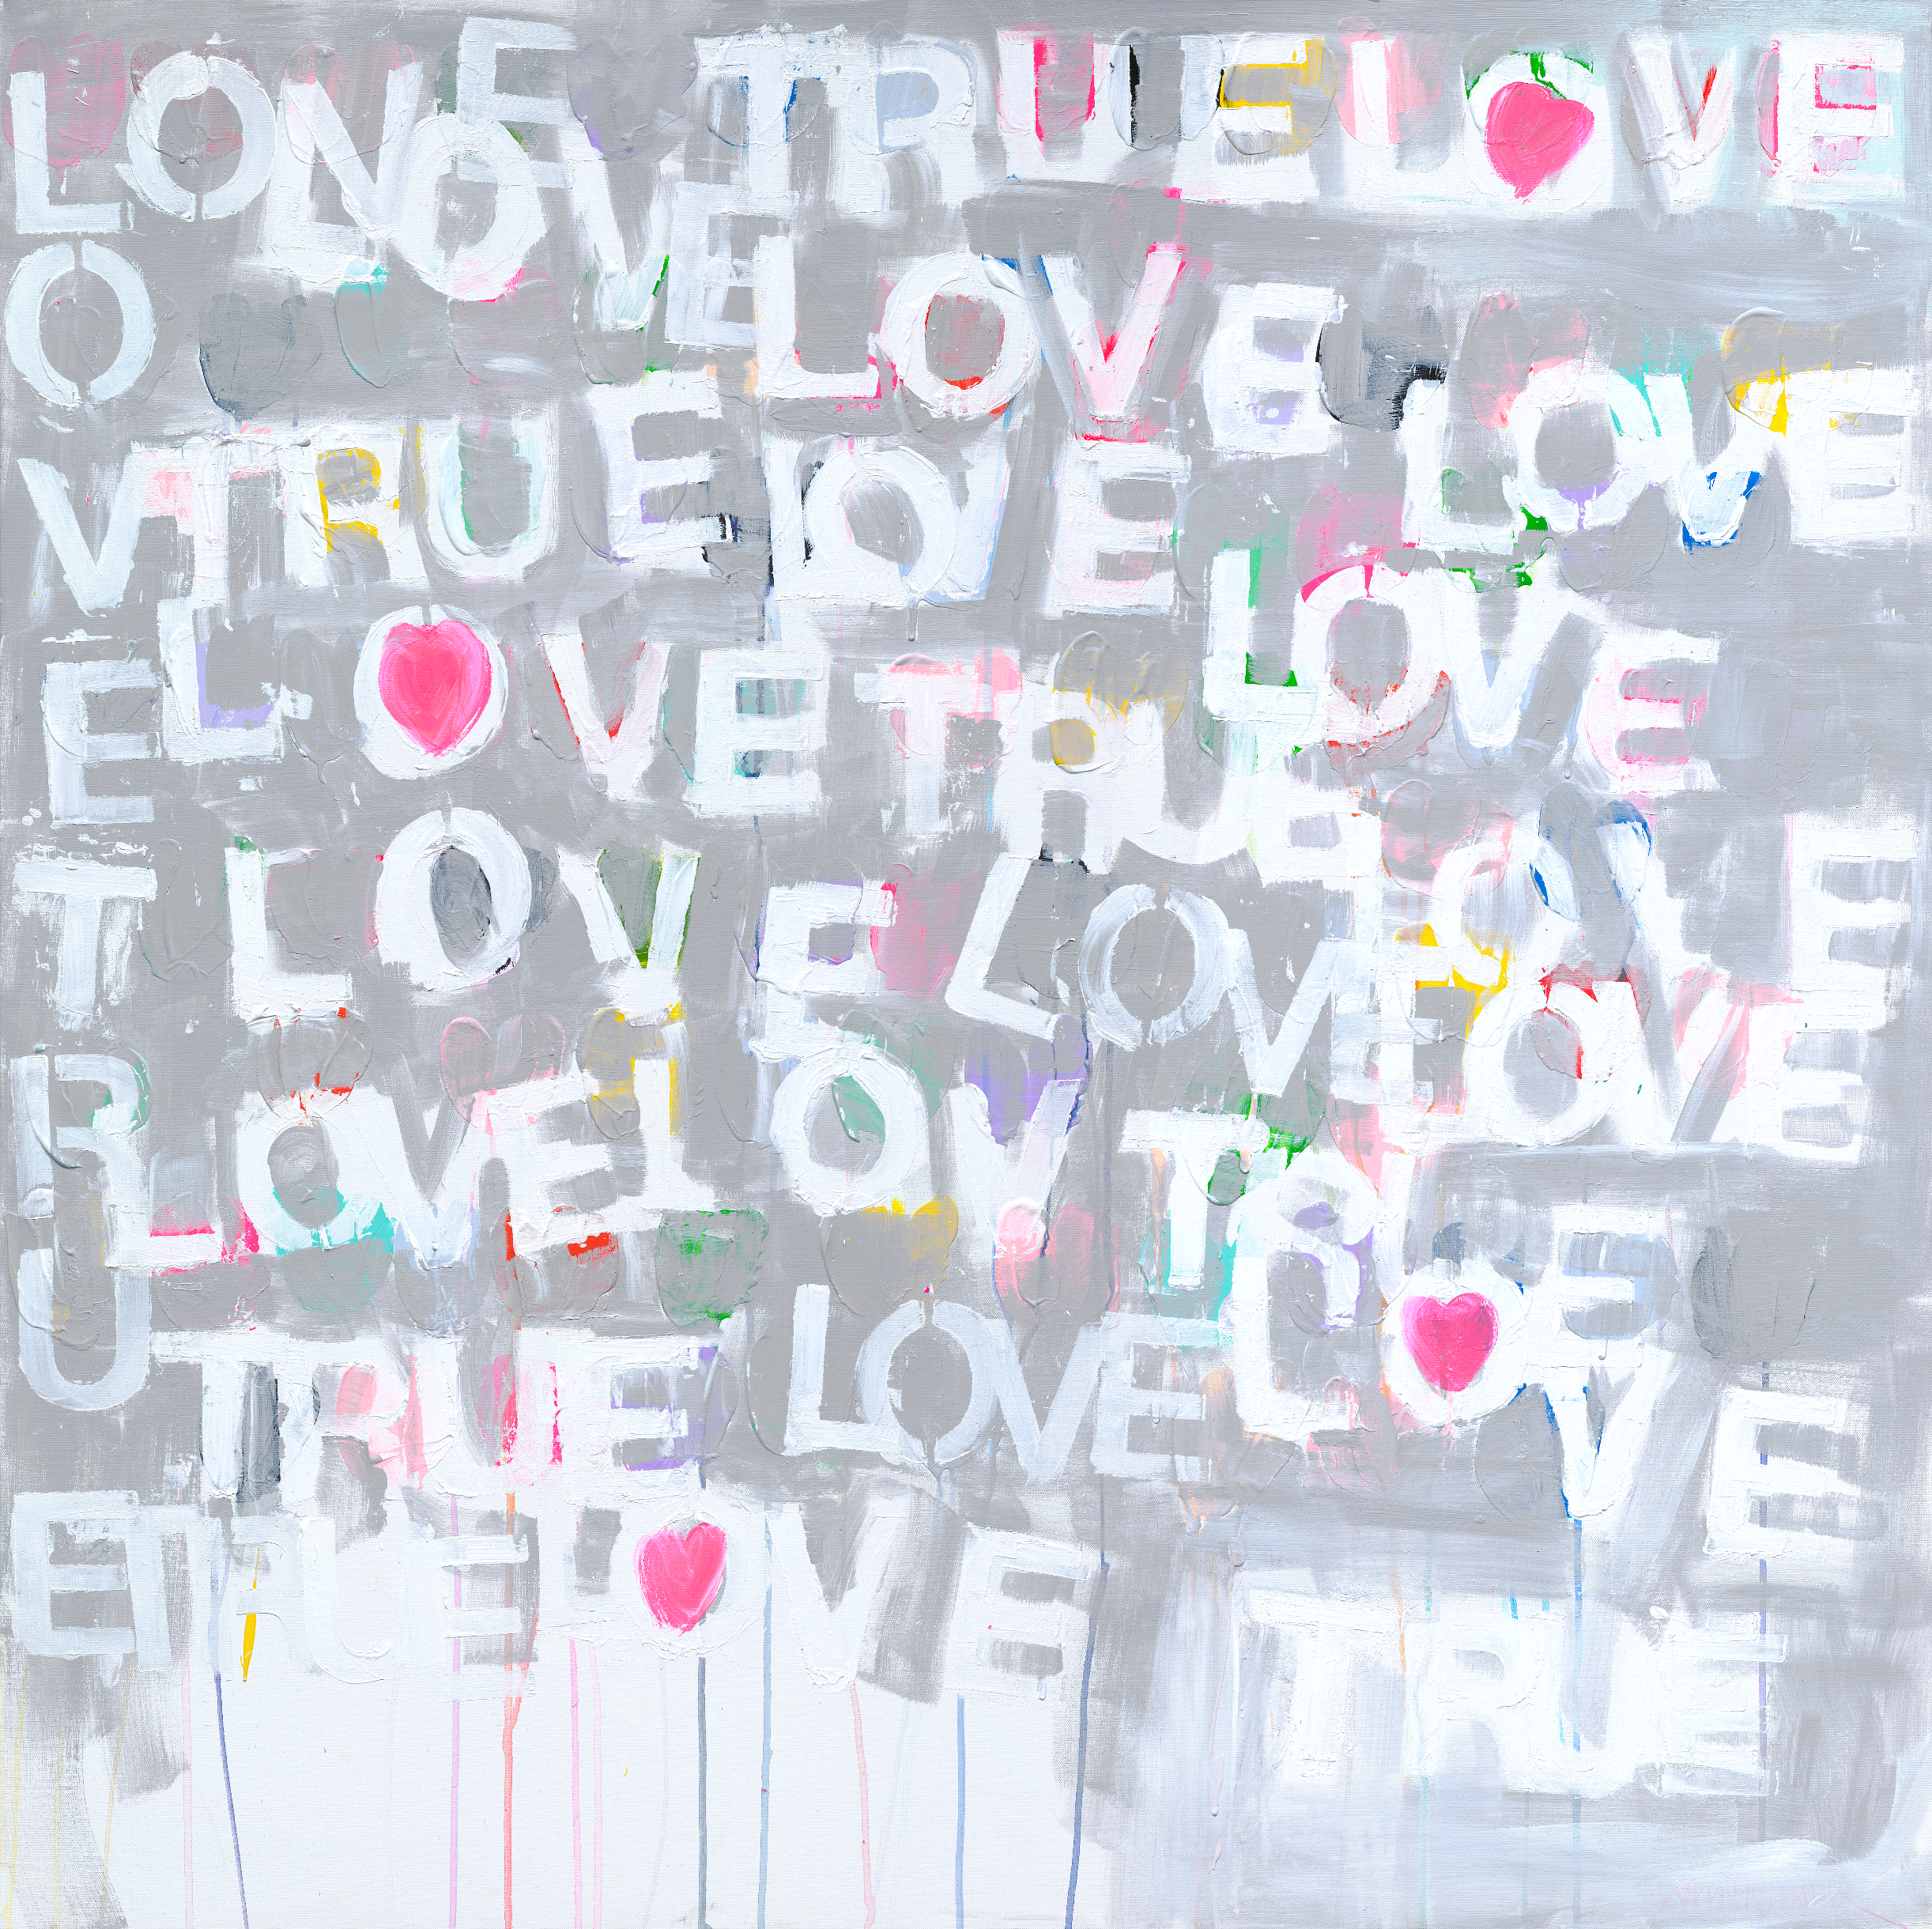 LOVE TRUE LOVE
LOVE LOVE LOVE
TRUE LOVE LOVE
LOVE TRUE LOVE
LOVE LOVE LOVE
LOVE LOVE LOVE
LOVE TRUE
TRUE LOVE LOVE
TRUE LOVE TRUE
LOVE TRUE